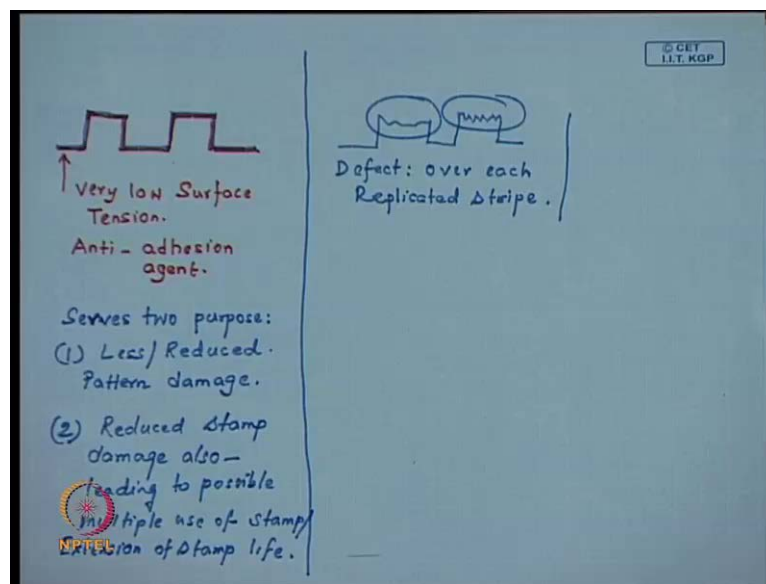 © CET
I.I.T. KGP
Very low Surface
Tension.
Anti-adhesion
agent.
Serves two purpose:
(1) Less/Reduced.
Pattern damage.
(2) Reduced stamp
damage also-
leading to possible
multiple use of stamp/
Extension of stamp life.
Defect: over each
Replicated stripe.
NPTEL